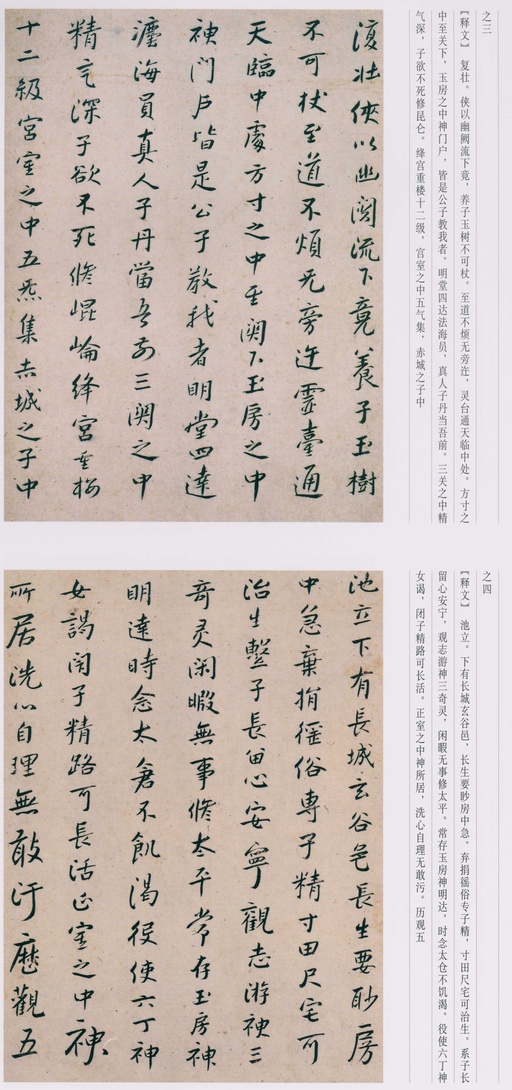 之三
【释文】 复壮。侠以幽阙流下竟，养子玉树不可杖。至道不烦无旁迕，灵台通天临中处。方寸之
中至关下，玉房之中神门户，皆是公子教我者。明堂四达法海员，真人子丹当吾前。三关之中精
气深，子欲不死修昆仑。绛宫重楼十二级，宫室之中五气集，赤城之子中
復壮侠以幽阙流下竟養子玉樹
不可杖至道不煩无旁迕靈臺通
天臨中處方寸之中至関下玉房之中
神門戶皆是公子教我者明堂四達
灋海員真人子丹當吾前三関之中
精气深子欲不死脩崐崘絳宮重楼
十二級宮室之中五炁集赤城之子中
之四
【释文】 池立。下有长城玄谷邑，长生要眇房中急。弃捐徭俗专子精，寸田尺宅可治生。系子长
留心安宁，观志游神三奇灵，闲暇无事修太平。常存玉房神明达，时念太仓不饥渴。役使六丁神
女谒，闭子精路可长活。正室之中神所居，洗心自理无敢污。历观五
池立下有長城玄谷邑長生要眇房
中急棄捐徭俗專子精寸田尺宅可
治生繫子長留心安寧觀志游神三
奇灵閑暇無事脩太平常存玉房神
明達時念太倉不飢渴役使六丁神
女謁閉子精路可長活正室之中神
所居洗心自理無敢汙歷觀五